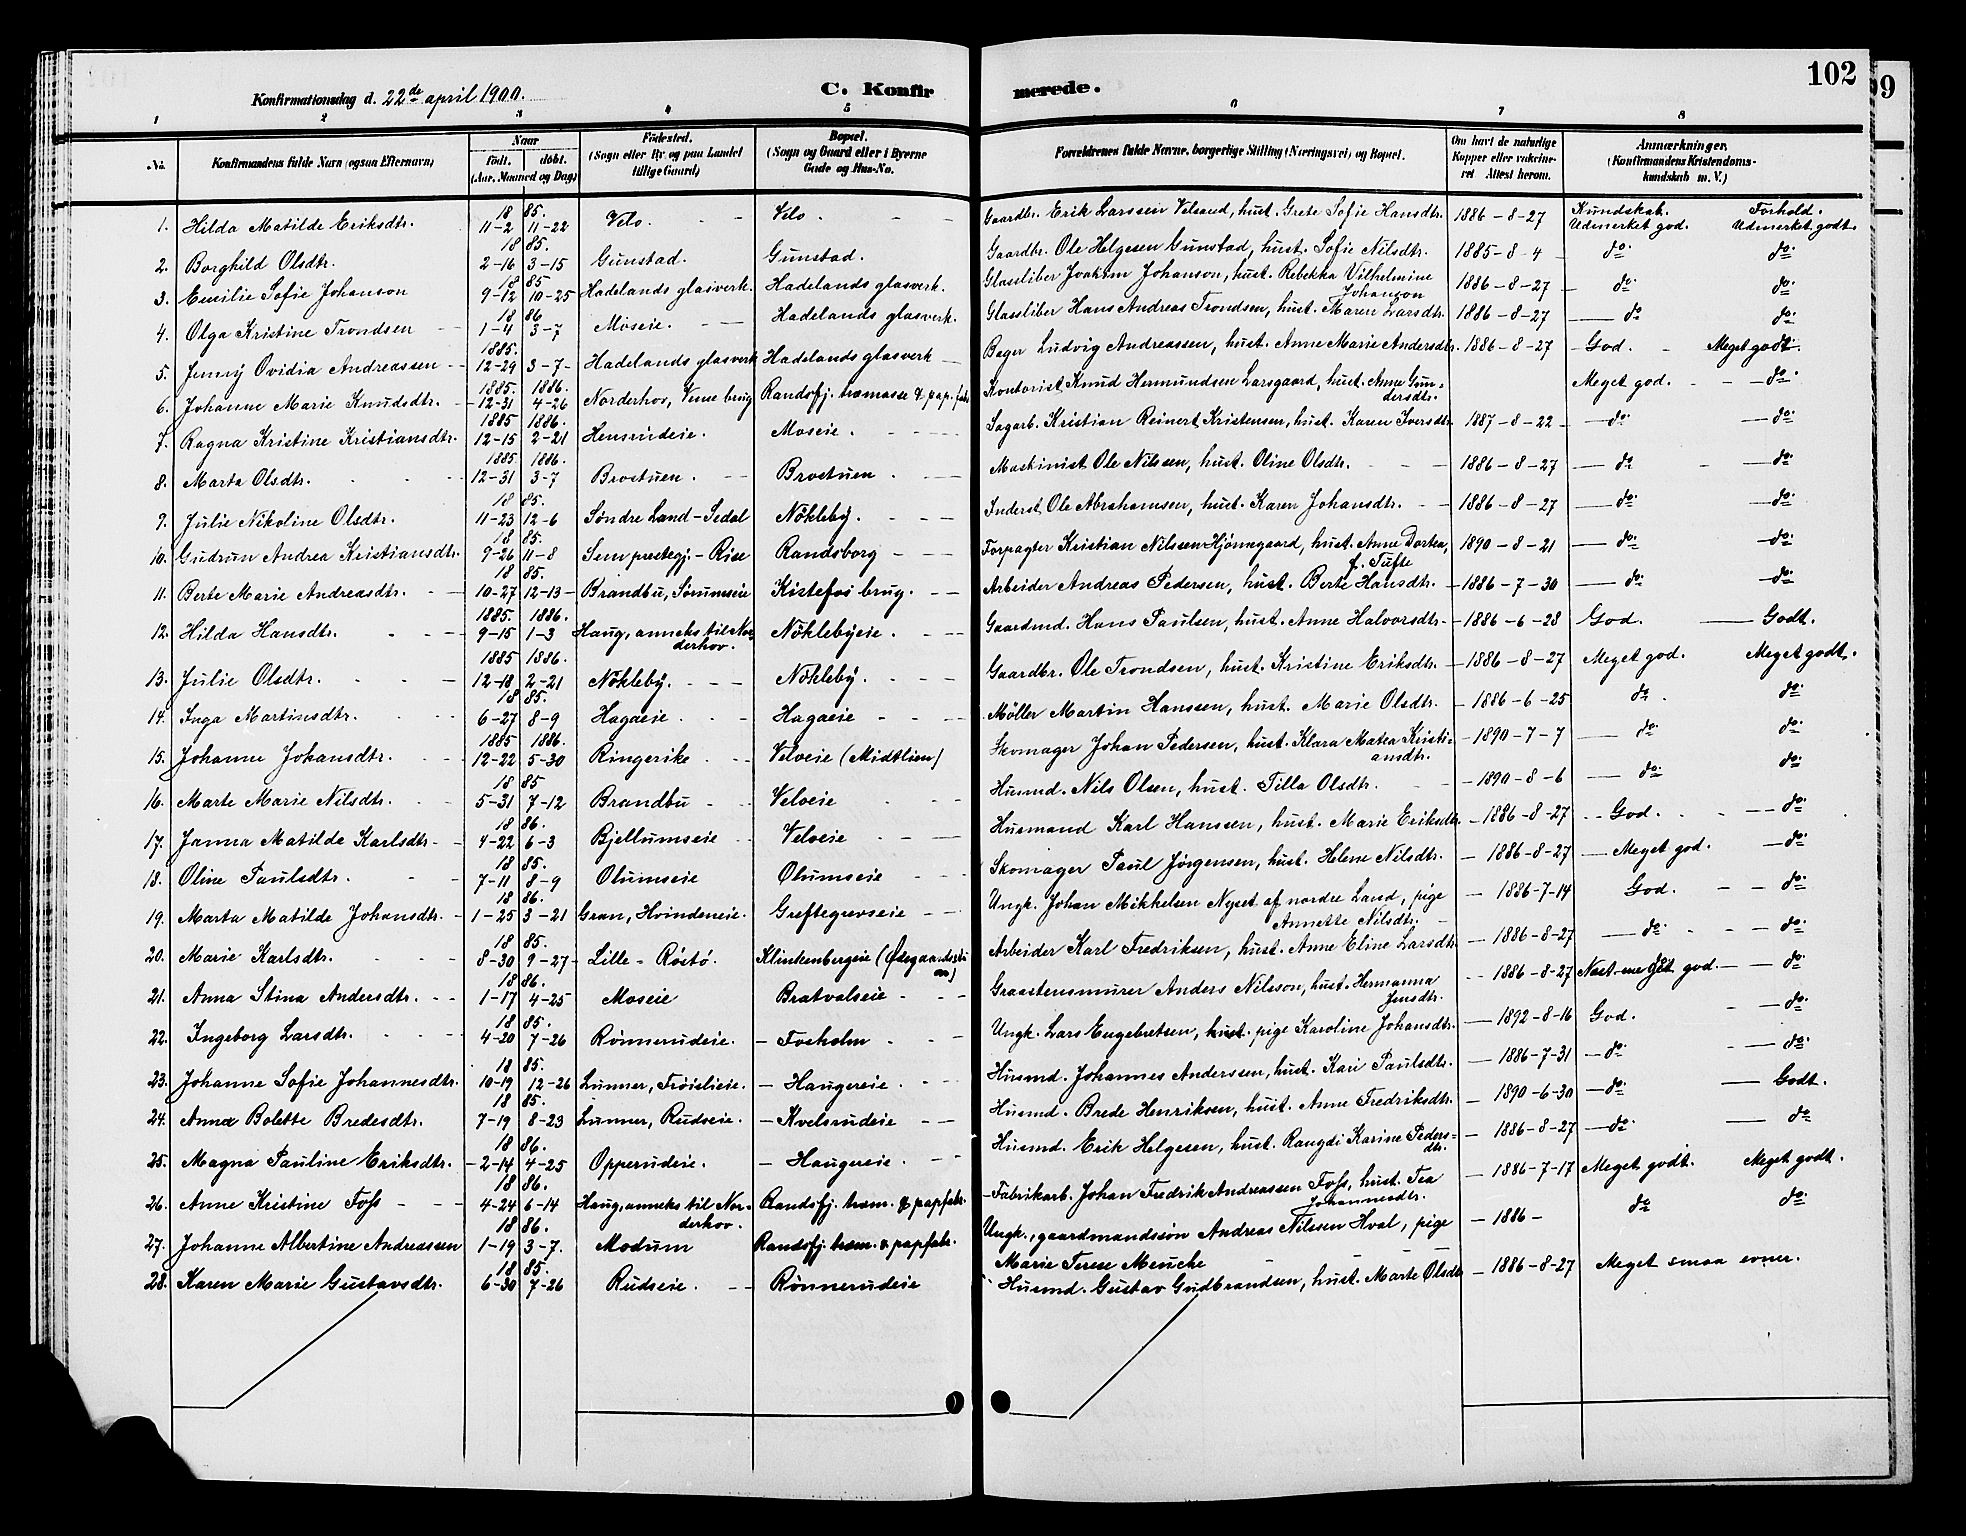 102
9
Konfirmationsdag d. 22de april 1900. C. Konfirmerede.
1 2 3 4 5 6 7 8
No. Konfirmandens fulde Navn (ogsaa Efternavn) Naar født. døbt. (Aar, Maaned og Dag) Fødested. (Sogn eller By og paa Landet tillige Gaard) Bopæl. (Sogn og Gaard eller i Byerne Gade og Hus-No. Forældrenes fulde Navne, borgerlige Stilling (Næringsvei) og Bopæl. Om havt de naturlige Kopper eller vaccineret Attest herom. Anmærkninger, (Konfirmandens Kristendomskundskab m. V.)
Kundskab. Forhold.
1. Hilda Matilde Eriksdtr. 1885. 11-2 11-22 Velo. Velo. Gaardbr. Erik Larssen Velsand, hust. Grete Sofie Hansdtr. 1886-8-27 Udmerket god. Udmerket godt.
2. Borghild Olsdtr. 1885. 2-16 3-15 Gunstad. Gunstad. Gaardbr. Ole Helgesen Gunstad, hust. Sofie Nilsdtr. 1885-8-4 do. do.
3. Emilie Sofie Johanson 1885 9-12 10-25 Hadelands glasverk. Hadelands glasverk. Glassliber Joakim Johanson, hust. Rebekka Vilhelmine Johanson 1886-8-27 do. do.
4. Olga Kristine Trondsen 1886 1-4 3-7 Moseie. Hadelands glasverk. Glassliber Hans Andreas Trondsen, hust. Maren Larsdtr. 1886-8-27 do do.
5. Jenny Ovidia Andreassen 1885. 12-29 3-7 Hadelands glasverk Hadelands glasverk Bager Ludvig Andreassen, hust. Anne Marie Andersdtr. 1886-8-27 God. Meget godt.
6. Johanne Marie Knudsdtr. 1885. 1886. 12-31 4-26 Norderhov, Veme brug Randsfj. træmasse & pap. fab Kontorist Knud Hermundsen Larsgaard, hust. Anne Gundersdtr. Meget god. do.
7. Ragna Kristine Kristiansdtr. 1885 1886. 12-15 2-21 Hensrudeie. Moseie. Sagarb. Kristian Reinert Kristensen, hust. Karen Iversdtr. 1887-8-22 do. do.
8. Marta Olsdtr. 1885 1886. 12-31 3-7 Brostuen. Brostuen Maskinist Ole Nilssen, hust. Oline Olsdtr. 1886-8-27 do do.
9. Julie Nikoline Olsdtr. 1885. 11-23 12-6 Søndre Land-Sedal Nökleby. Inderst Ole Abrahamsen, hust. Karen Johansdtr. 1886-8-27 do. do.
10. Gudrun Andrea Kristiansdtr. 1885. 9-26 11-8 Sem prestegj.-Rise Randsborg Forpagter Kristian Nilssen Hjönnegaard, hust. Anne Dortea, f. Tufte 1890-8-21 do. do.
11. Berte Marie Andreasdtr. 1885. 10-27 12-13 Brandbu, Sørumseie Kistefos brug. Arbeider Andreas Pedersen, hust. Berte Hansdtr. 1886-7-30 do. do.
12. Hilda Hansdtr. 1885. 1886. 9-15 1-3 Haug, anneks til Norderhov. Nöklebyeie. Gaardmd. Hans Paulsen, hust. Anne Halvorsdtr. 1886-6-28 God. Godt.
13. Julie Olsdtr. 1885 1886. 12-18 2-21 Nökleby. Nökleby. Gaardbr. Ole Trondsen, hust. Kristine Eriksdtr. 1886-8-27 Meget god. Meget godt.
14. Inga Martinsdtr. 1885. 6-27 8-9 Hagaeie. Hagaeie Møller Martin Hanssen, hust. Marie Olsdtr. 1886-6-25 do. do.
15. Johanne Johansdtr. 1885 1886. 12-22 5-30 Ringerike Velveie (Midtlien) Skomager Johan Pedersen, hust. Klara Matea Kristiansdtr. 1890-7-7 do. do.
16. Marte Marie Nilsdtr. 1885 5-31 7-12 Brandbu Veloeie Husmd. Nils Olsen, hust. Tilla Olsdtr. 1890-8-6 do. do.
17. Janna Matilde Karlsdtr. 1886. 4-22 6-3 Bjellumseie Veloeie Husmand Karl Hanssen, hust. Marie Eriksdtr. 1886-8-27 God. do.
18. Oline Paulsdtr. 1885. 7-11 8-9 Olumseie Olumseie Skomager Paul Jørgensen, hust. Helene Nilsdtr. 1886-8-27 Meget god. do.
19. Marta Matilde Johansdtr. 1886. 1-25 3-21 Gran, Hvindeneie. Greftegrevseie Ungk. Johan Mikkelsen Nyset af nordre Land, pige Annette Nilsdtr. 1886-7-14 God. do.
20. Marie Karlsdtr. 1885. 8-30 9-27 Lille-Röstö. Klinkenbergeie Arbeider Karl Fredriksen, hust. Anne Eline Larsdtr 1886-8-27 do. do.
21. Anna Stina Andersdtr. 1886. 1-17 4-25 Moseie Bratvalseie Graastensmurer Anders Nilsson, hust. Hermanna Jensdtr. 1886-8-27 Næst meget god. do.
22. Ingeborg Larsdtr. 1885. 4-20 7-26 Rönnerudeie. Fosholm Ungk. Lars Engebretsen, hust. pige Karoline Johansdtr. 1892-8-16 God. do.
23. Johanne Sofie Johannesdtr. 1885. 10-19 12-26 Lunner, Fröislieie. Haugereie. Husmd. Johannes Anderssen, hust. Kari Paulsdtr. 1886-7-31 do. do.
24. Anna Bolette Bredesdtr. 1885. 7-19 8-23 Lunner, Rudseie. Kvelsrudeie Husmd. Brede Henriksen, hust. Anne Fredriksdtr. 1890-6-30 do. Godt.
25. Magna Pauline Eriksdtr. 1886. 2-14 4-25 Opperudeie. Haugereie. Husmd. Erik Helgesen, hust. Rangdi Karine Pedersdtr. 1886-8-27 do. do.
26. Anne Kristine Foss 1886. 4-24 6-14 Haug, anneks til Norderhov. Randsfj. træm. & papfabr. Fabrikarb. Johan Fredrik Andreassen Foss, hust. Tea Johannesdtr. 1886-7-17 Meget godt. Meget godt.
27. Johanne Albertine Andreassen 1886. 1-19 3-7. Modum Randsfj. træm. & papfabr. Ungk., gaardmandssøn Andreas Nilssen Hval, pige Marie Terese Meucke 1886- do do.
28. Karen Marie Gustavsdtr. 1885. 6-30 7-26 Rudseie. Rønnerudeie Husmd. Gustav Gudbrandsen, hust. Marte Olsdtr 1886-8-27 Meget smaa evner.